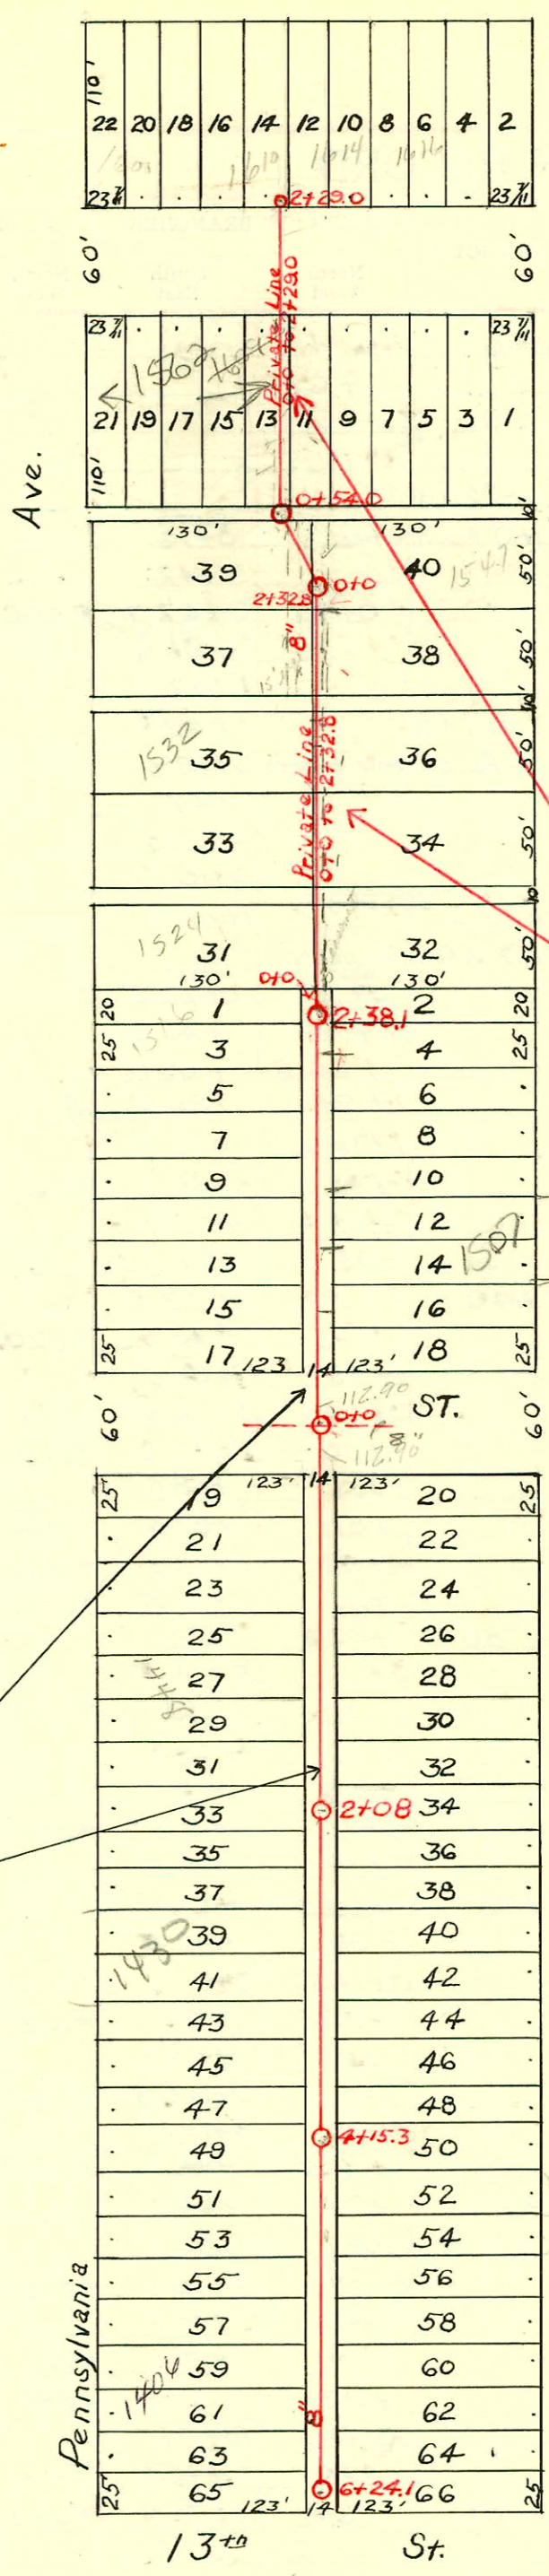 110'
22 20 18 16 14 12 10 8 6 4 2
1610 1614 1616
23 7/11 2+29.0 23 7/11
60' 60'
Private Line
0+0 to 2+29.0
23 7/11 23 7/11
1562
21 19 17 15 13 11 9 7 5 3 1
110'
Ave.
0+54.0 10'
130' 130'
39 40 50'
1547
2+32.8 0+0
8"
37 38 50'
10'
1532
35 36 50'
Private Line
0+0 to 2+32.8
33 34 50'
10
1524
31 32 50'
130' 0+0 130'
20 1 2+38.1 2 20
1516
25 3 4 25
5 6
7 8
9 10
11 12
13 14 1507
15 16
25 17 123 14 123' 18 25
60' 112.90 ST. 60'
0+0
8"
112.90
25 19 123' 14 123' 20 25
21 22
23 24
25 26
27 28
29 30
31 32
33 2+08 34
35 36
37 38
39 40
1430
41 42
43 44
45 46
47 48
4+15.3
49 50
51 52
53 54
55 56
57 58
59 60
1404
61 8" 62
63 64
25' 65 6+24.1 66 25
123' 14 123'
Pennsylvania
13th St.